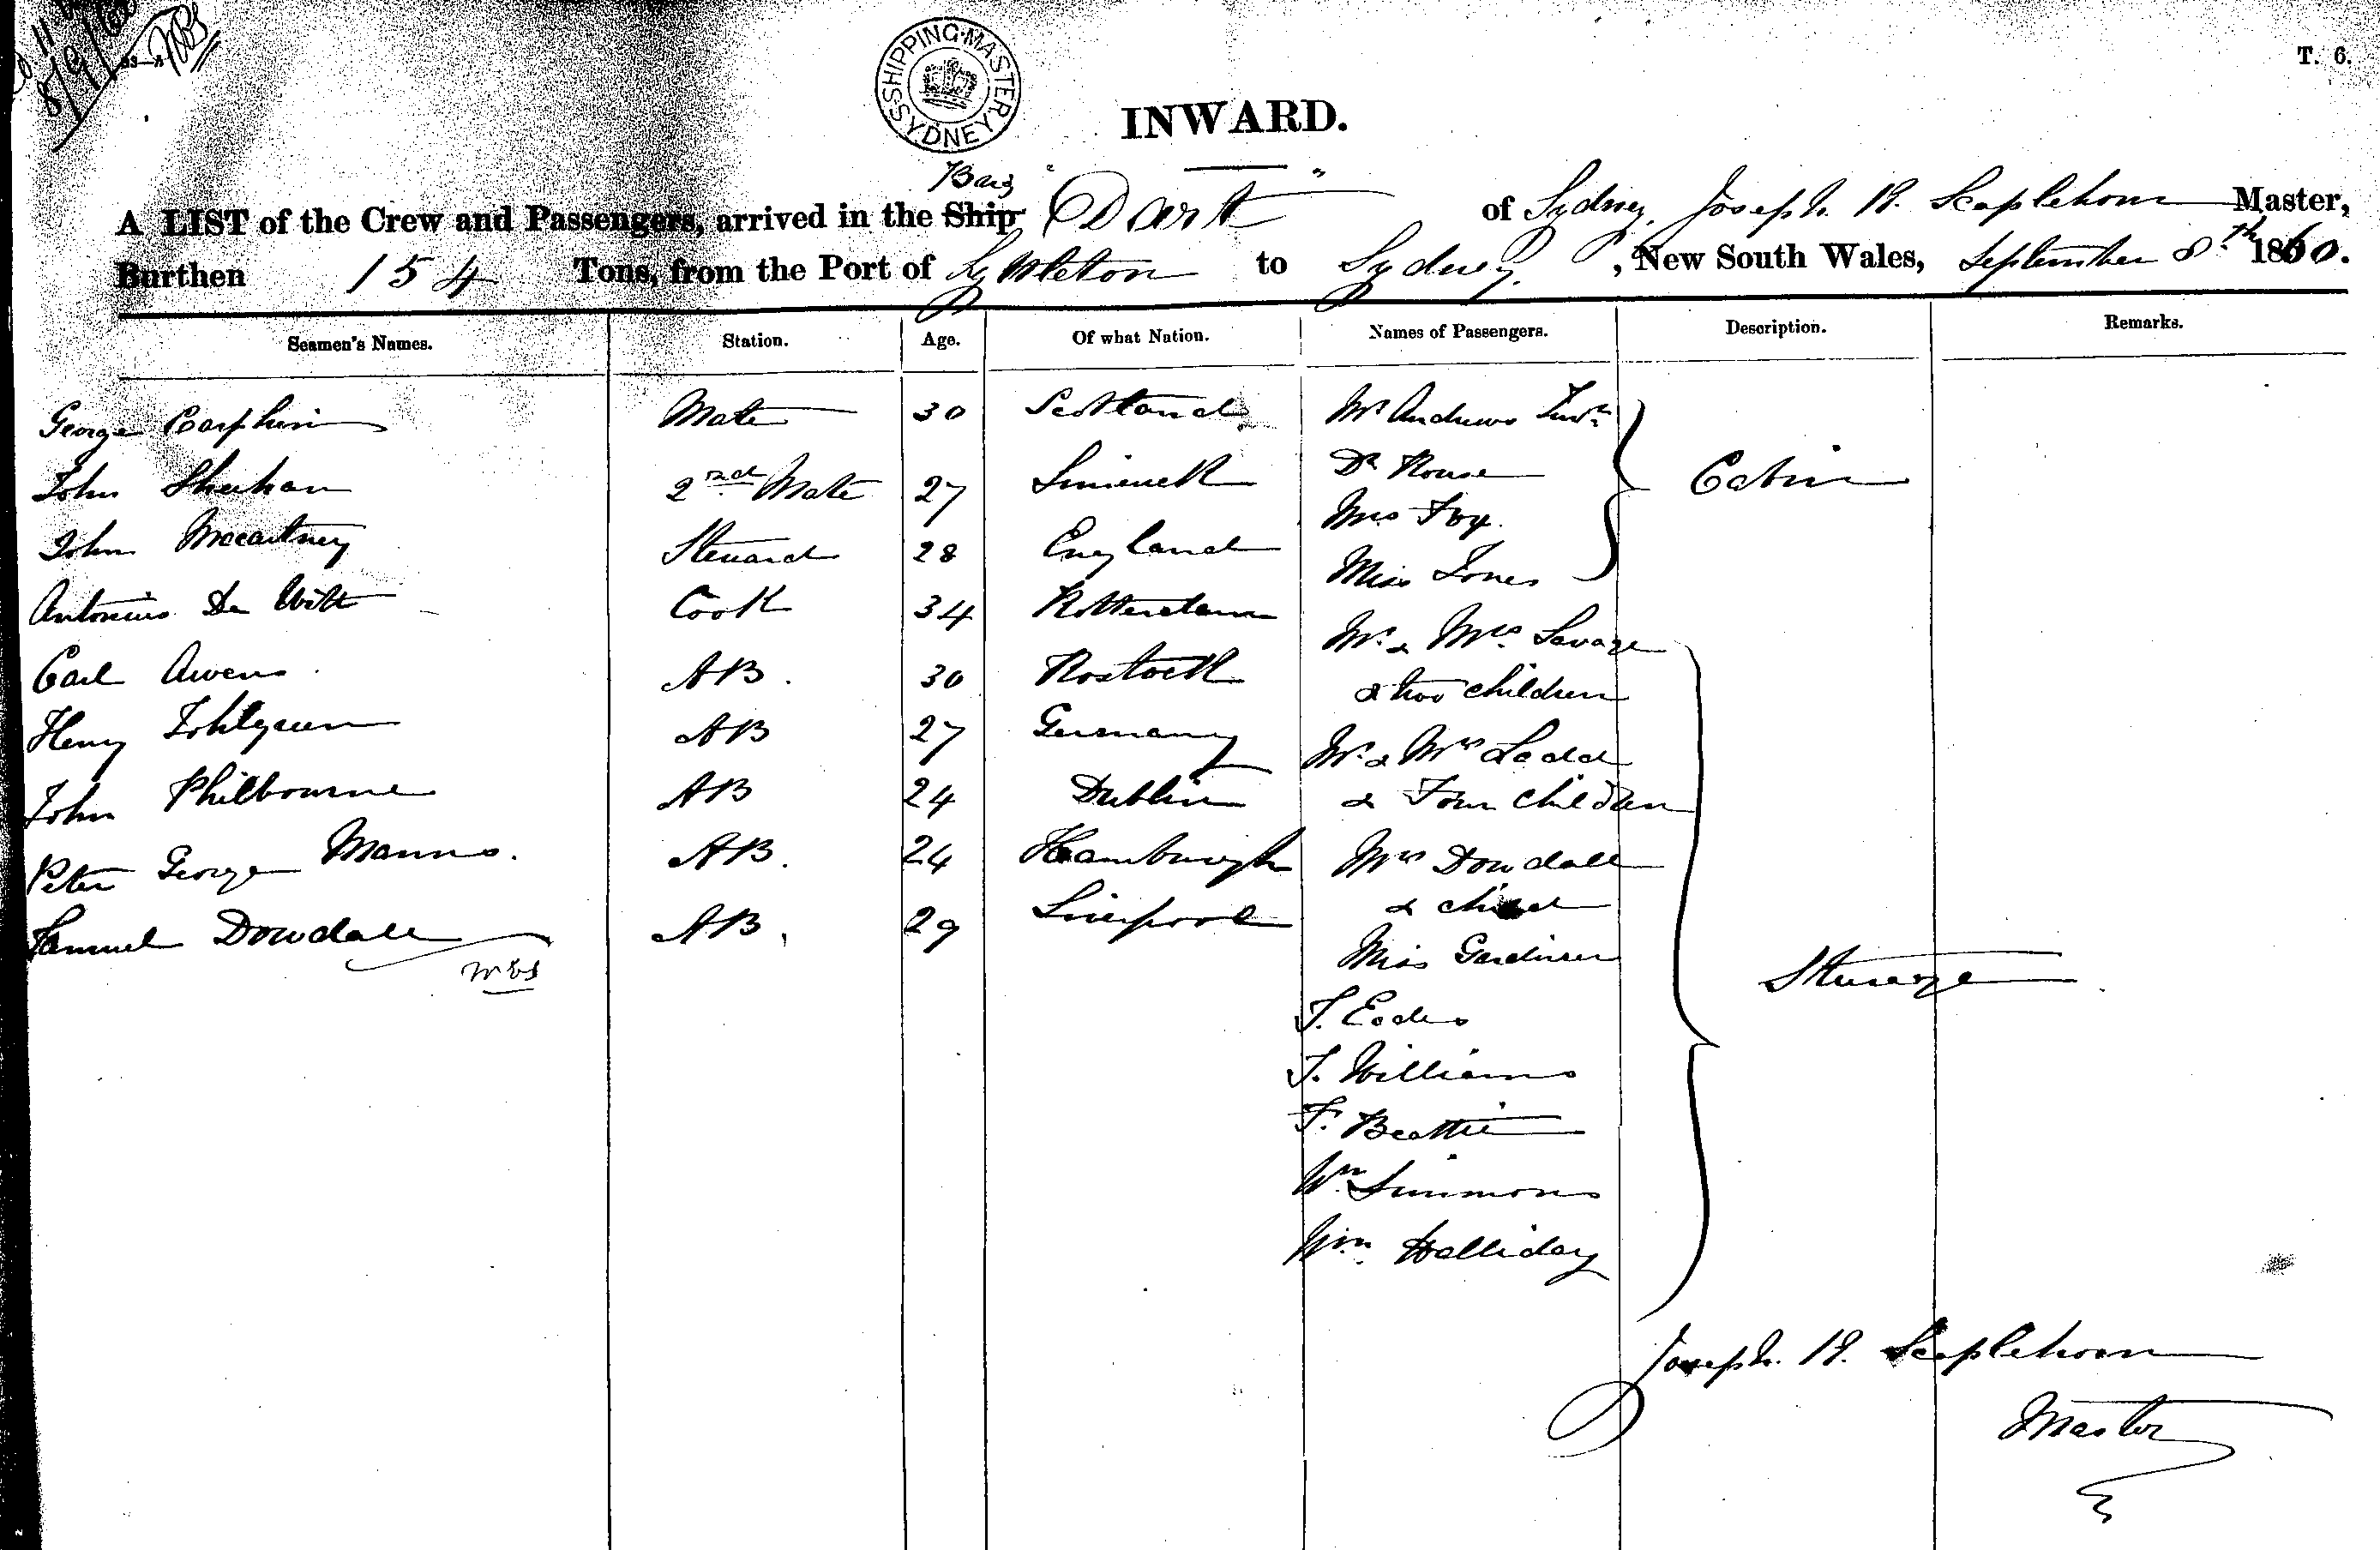 8/9/60
T. 6.
SHIPPING MASTER SYDNEY
INWARD.
Barq
A LIST of the Crew and Passengers, arrived in the Ship "Dart" of Sydney, Joseph H. Scaplehorn Master,
Burthen 154 Tons, from the Port of Lyttleton to Sydney, New South Wales, September 8th 1860.
Seamen's Names. Station. Age. Of what Nation. Names of Passengers. Description. Remarks.
George Carphin Mate 30 Scotland Mr Andrews Junr
John Sheehan 2nd Mate 27 Limerick Dr Rouse Cabin
John Macartney Steward 28 England Mrs Foy
Miss Jones
Antonius De Witt Cook 34 Rotterdam Mr. & Mrs. Savage
Carl Awens AB. 30 Rostock & two children
Henry AB 27 Germany Mr. & Mrs Ladd
John Philbourne AB 24 Dublin & Four Children
Peter George Manns. AB. 24 Hamburgh Mrs Dowdall
Samuel Dowdall AB. 29 Liverpool & child
Miss Gardiner Steerage
J. Eades
J. Williams
F. Beattie
Wm Simmons
Wm. Halliday
Joseph. H. Scaplehorn
Master